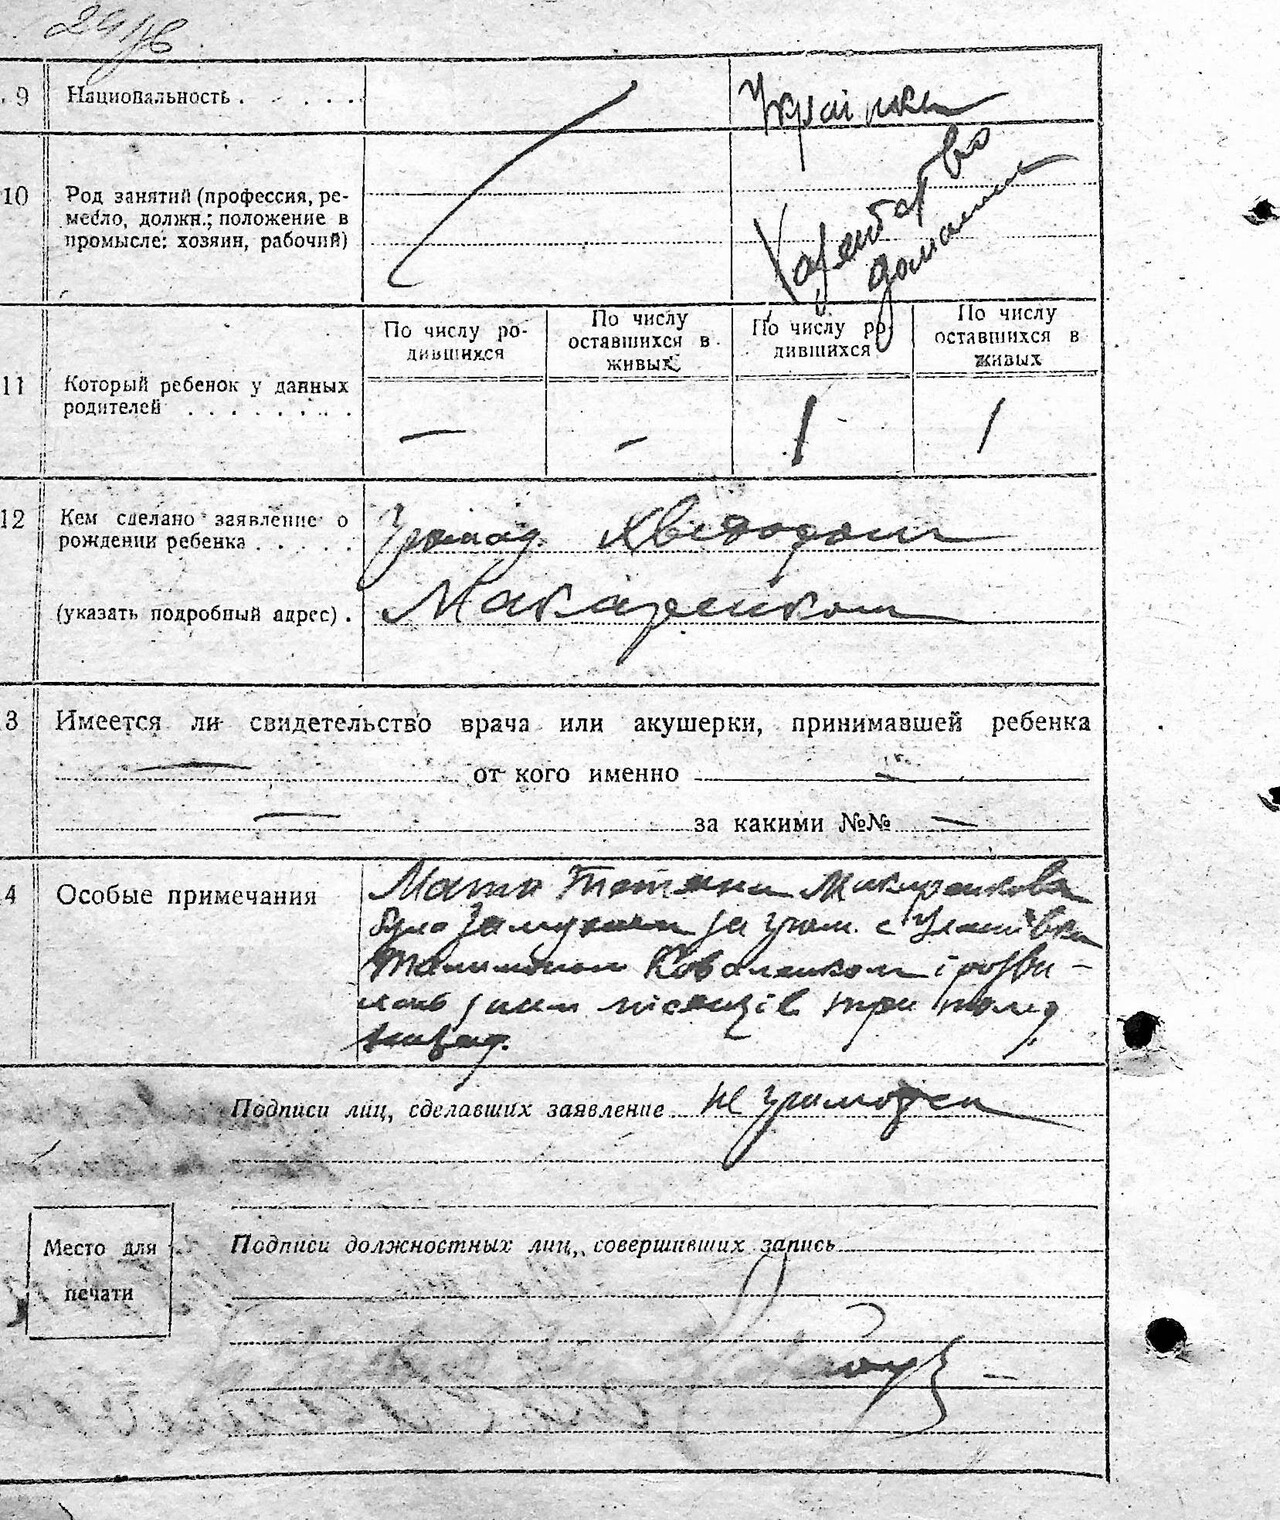 9 Национальность . . . . . .
Українка
10 Род занятий (профессия, ре-
месло, должн.; положение в
промысле: хозяин, рабочий)
домашнє
По числу ро-
дившихся
По числу
оставшихся в
живых
По числу ро-
дившихся
По числу
оставшихся в
живых
11 Который ребенок у данных
родителей . . . . . . . .
— — 1 1
12 Кем сделано заявление о
рождении ребенка . . . . .
Громад. Хведором
(указать подробный адрес) .
Макаренком
3 Имеется ли свидетельство врача или акушерки, принимавшей ребенка
— от кого именно —
— за какими №№ —
4 Особые примечания
Мати Тетяна Макаренкова
була замужем за гром. с
Коваленком і розви-
лась з ним місяців три тому
назад.
Подписи лиц, сделавших заявление не грамотен
Место для
печати
Подписи должностных лиц, совершивших запись